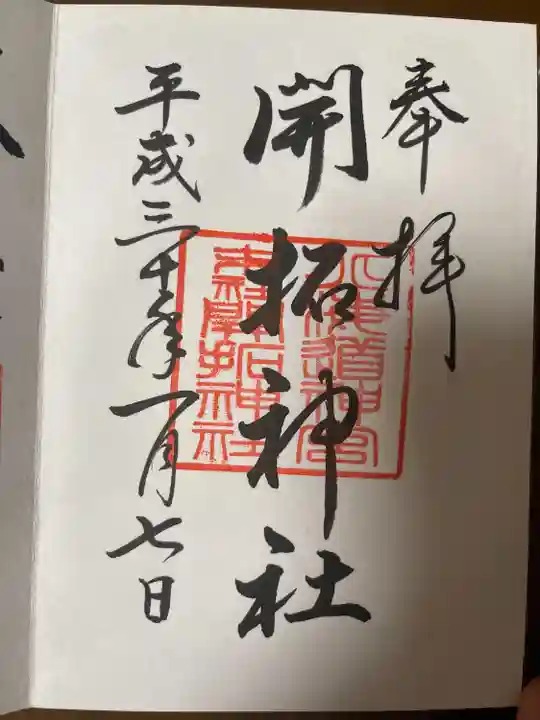 奉拝
開拓神社
北海道神宮
末社開拓神社
平成三十年一月七日